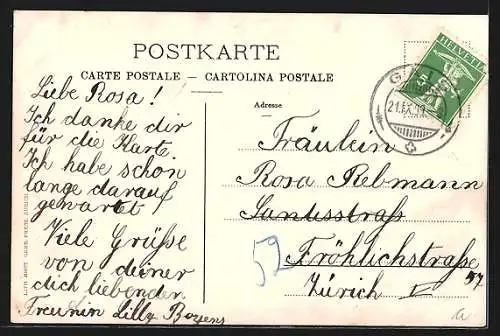 POSTKARTE
CARTE POSTALE – CARTOLINA POSTALE
Liebe Rosa!
Ich danke dir
für die Karte.
Ich habe schon
lange darauf
gewartet
Viele Grüße
von deiner
dich liebenden
Freundin Lilly
Adresse
Fräulein
Rosa Rebmann
Santisstraß
Fröhlichstraße
57
Zürich V
52
HELVETIA
5
21.IX.